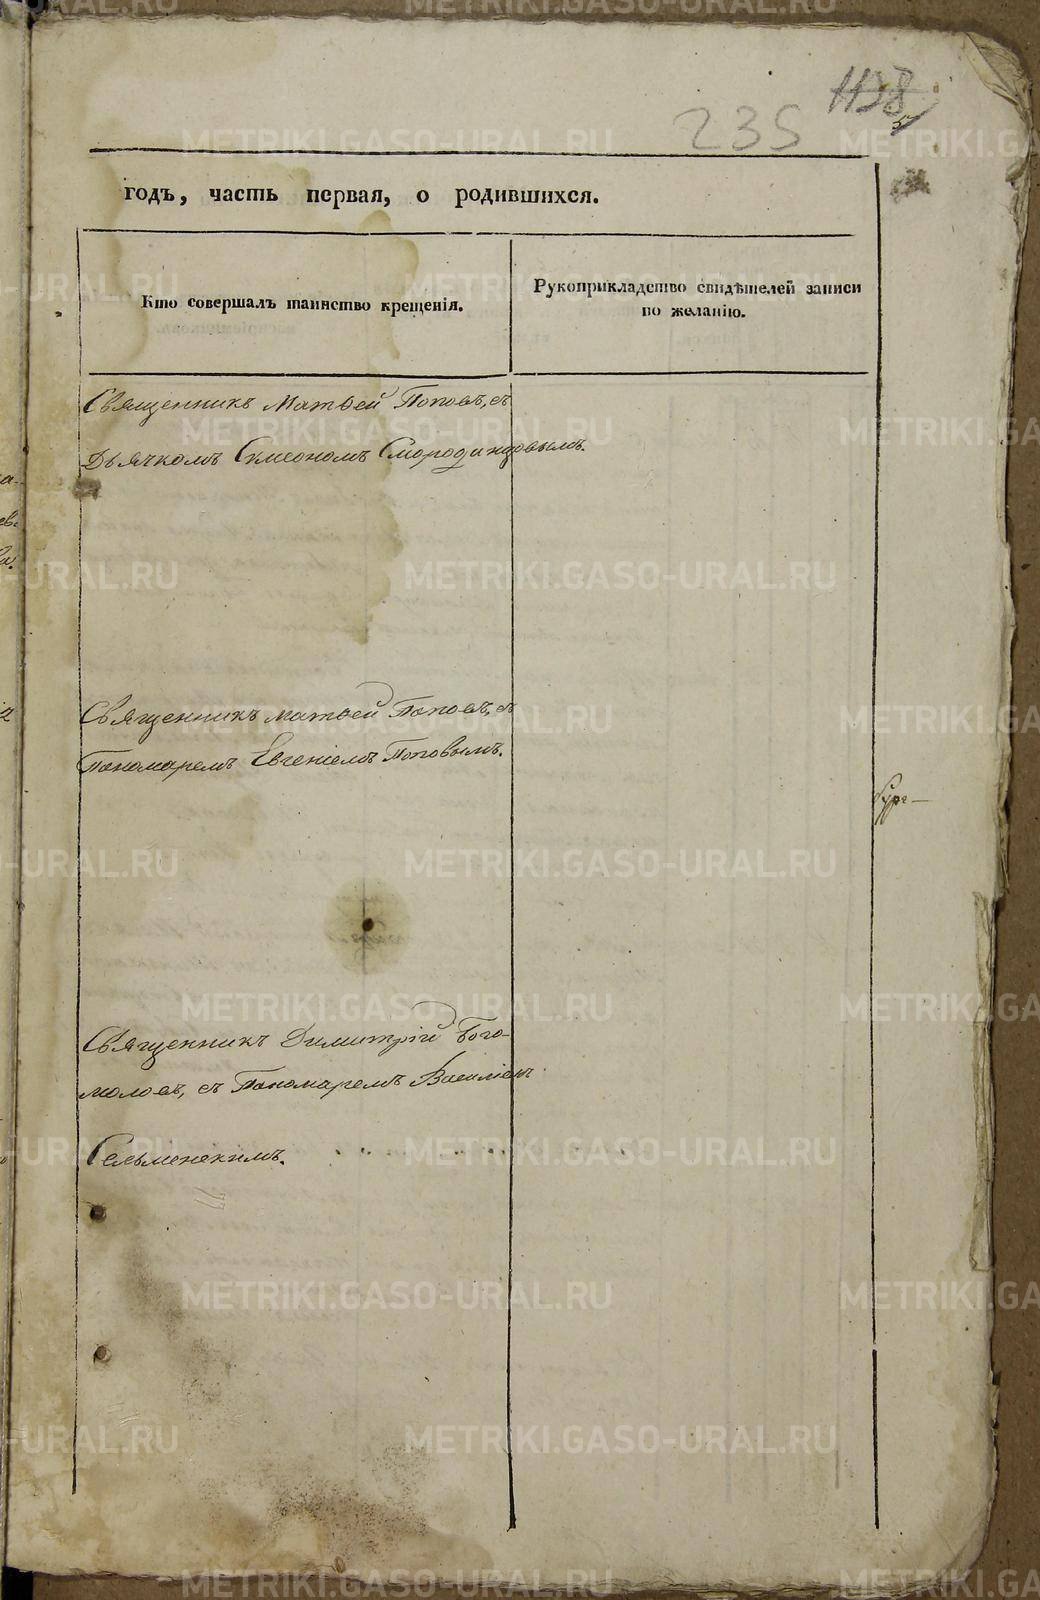 1138
235
годъ, часть первая, о родившихся.
Кто совершалъ таинство крещенія.
Рукоприкладство свидѣтелей записи
по желанію.
Священникъ Матвей Поповъ, съ
Дьячкомъ Симеономъ Смородинцовымъ.
Священникъ Матвей Поповъ, съ
Пономаремъ Евгеніемъ Поповымъ.
Священникъ Димитрій Бого-
моловъ, съ Пономаремъ Василіемъ
Сельменскимъ.
METRIKI.GASO-URAL.RU